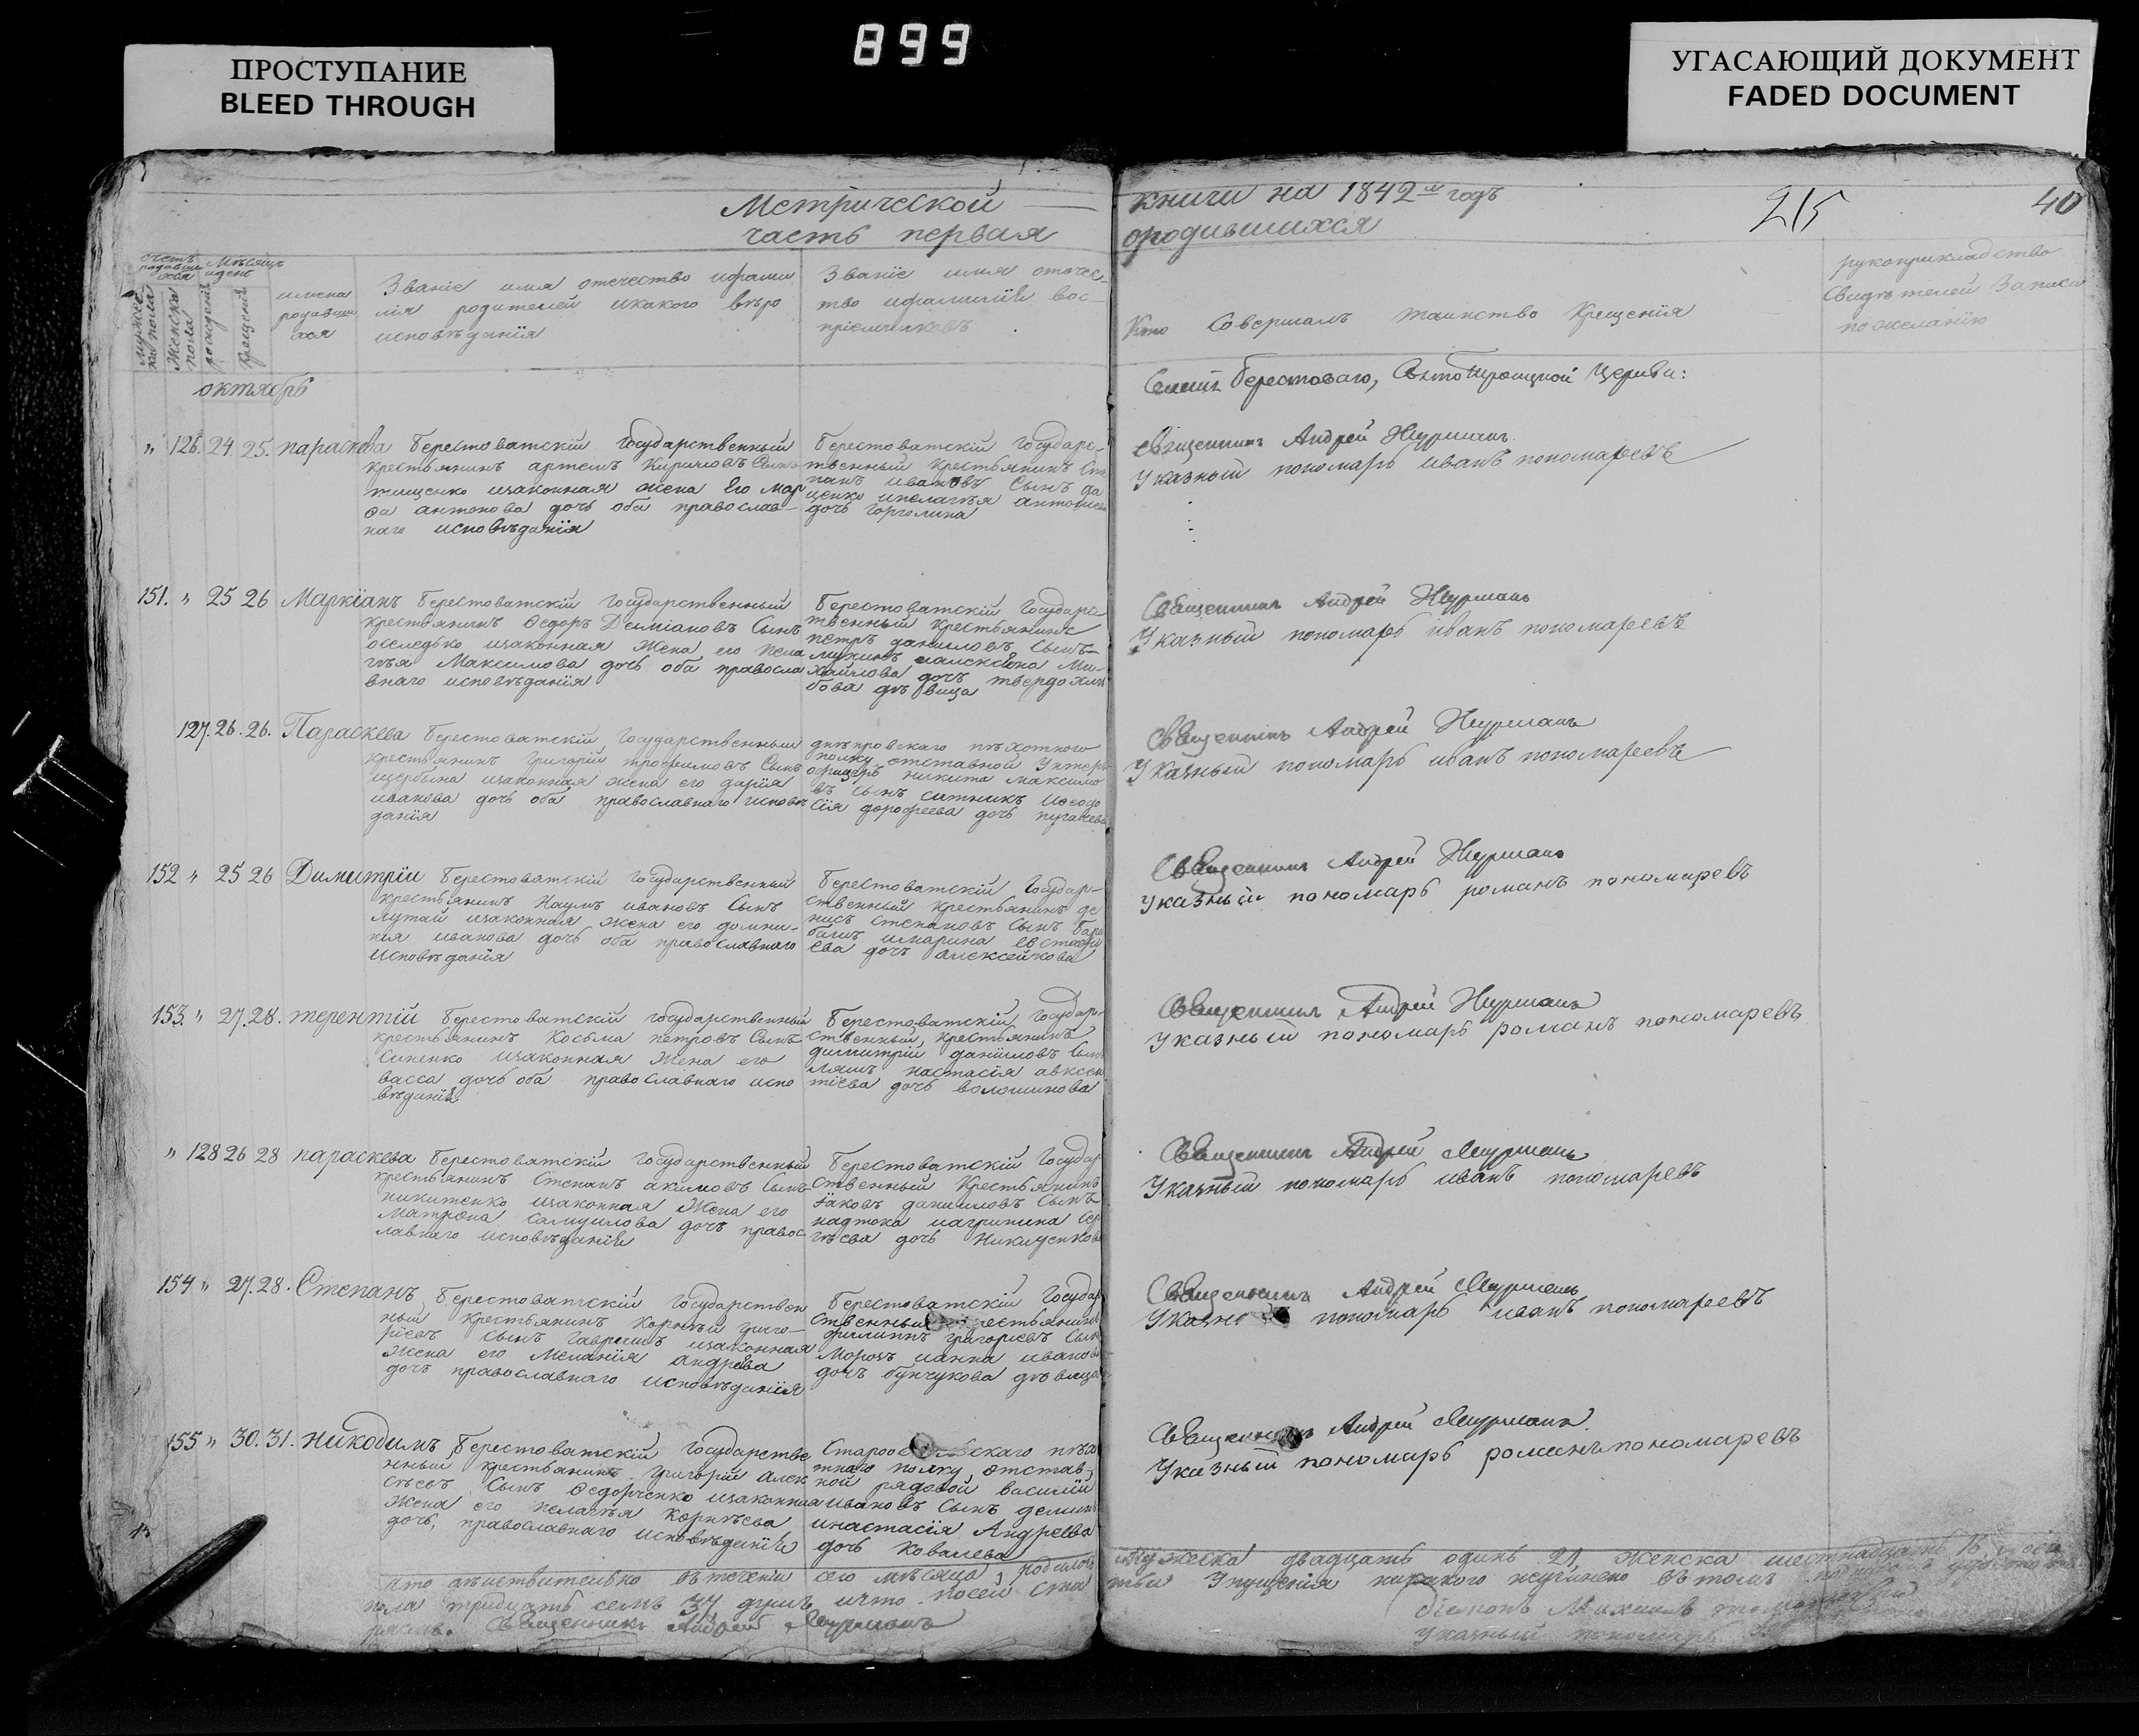 899
ПРОСТУПАНИЕ
BLEED THROUGH
УГАСАЮЩИЙ ДОКУМЕНТ
FADED DOCUMENT
Метрической
часть первая
книги на 1842й годъ
ородившихся
215
40
Счетъ родивши хся
Мѣсяцъ иденъ
мужес ка пола
Женска пола
рожденія
Крещенія
имена
родивши
хся
Званіе имя отечество ифами
лія родителей икакого вѣро
исповѣданія
Званіе имя отечес
тво ифамилія вос
пріемниковъ
Кто Совершалъ таинство Крещенія
рукоприкладство
Свидѣтелей Записи
по желанію
октябрь
Берестоваго, Церкви:
" 126. 24. 25. параскева Берестоватскій Государственный
крестьянинъ артемъ Кириловъ Сынъ
тищенко изаконная жена Его мар
ѳа антонова дочь оба православ
наго исповѣданія
Берестоватскій Государс
твенный крестьянинъ Сте
панъ ивановъ Сынъ да
ценко ипелагѣя антонова
дочь
священникъ Андрей
Указный пономарь иванъ пономаревъ
151. " 25 26 Маркіанъ Берестоватскій Государственный
крестьянинъ Ѳедоръ Деміановъ Сынъ
оселедько изаконная Жена его пела
гѣя Максимова дочь оба правосла
внаго исповѣданія
Берестоватскій Государс
твенный крестьянинъ
петръ даниловъ Сынъ
иалексѣна Ми
хайлова дочь твердохлѣ
бова дѣвица
Священникъ Андрей
Указный пономарь иванъ пономаревъ
127. 26. 26. Параскева Берестоватскій Государственный
крестьянинъ Григорій трофимовъ Сынъ
щербина изаконная жена его дарія
иванова дочь оба православнаго исповѣ
данія
днѣпровскаго пѣхотного
полку отставной Унтеръ
офицеръ никита максимо
въ Сынъ Ситникъ иѳеодо
сія дорофеева дочь пугачева
Священникъ Андрей
Указный пономарь иванъ пономаревъ
152 " 25 26 Димитрій Берестоватскій Государственный
крестьянинъ Наумъ ивановъ Сынъ
лутай изаконная жена его домни
кія иванова дочь оба православнаго
исповѣданія
Берестоватскій Государ
ственный крестьянинъ де
нисъ Степановъ Сынъ
имарина
ева дочь алексейкова
Священникъ Андрей
Указный пономарь романъ пономаревъ
153. " 27. 28. терентій Берестоватскій государственный
крестьянинъ Косьма петровъ Сынъ
Синенко изаконная Жена его
васса дочь оба православнаго испо
вѣданія
Берестоватскій Государ
ственный крестьянинъ
димитрій даниловъ Сынъ
Ляшъ настасія авксен
тіева дочь волошинова
Священникъ Андрей
Указный пономарь романъ пономаревъ
" 128 26 28 параскева Берестоватскій Государственный
крестьянинъ Степанъ акимовъ Сынъ
никитенко изаконная Жена его
Матрона Самуилова дочь правос
лавнаго исповѣданія
Берестоватскій Государ
ственный Крестьянинъ
Яковъ даниловъ Сынъ
надтока иагрипина Сер
гѣева дочь Никищенкова
Священникъ Андрей
Указный пономарь иванъ пономаревъ
154 " 27. 28. Степанъ Берестоватскій Государствен
ный крестьянинъ Корнѣй григо
ріевъ Сынъ Гавришъ изаконная
Жена его Меланія андрѣва
дочь православнаго исповѣданія
Берестоватскій Государ
ственный крестьянинъ
филиппъ григоріевъ Сынъ
Морозъ ианна иванова
дочь бунчукова дѣвица
Священникъ Андрей
Указный пономарь иванъ пономаревъ
155 " 30. 31. никодимъ Берестоватскій Государстве
нный крестьянинъ григорій алек
сѣевъ Сынъ Ѳедорченко изаконная
Жена его пелагѣя Корнѣева
дочь, православнаго исповѣданія
пѣхо
тнаго полку отстав
ной рядовой василій
ивановъ Сынъ
инастасія Андреева
дочь Ковалева
Священникъ Андрей
Указный пономарь романъ пономаревъ
что дѣйствительно втеченіи сего мѣсяца родилось
мужеска двадцать одинъ 21, Женска шестнадцать 16
пола тридцать семь 37 душъ ичто посей ста
тьи Упущенія никакого неучинено втомъ
Священникъ Андрей
діаконъ Михаилъ
Указный пономарь